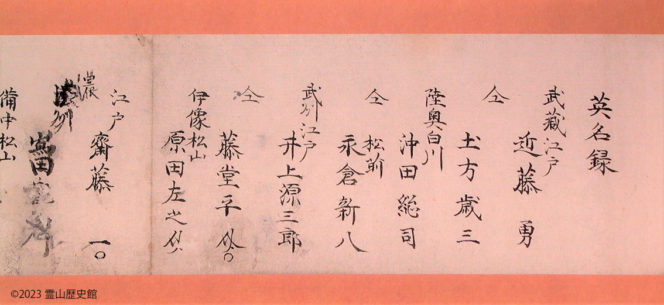 英名録
武蔵江戸
近藤 勇
仝
土方歳三
陸奥白川
沖田総司
仝 松前
永倉新八
武州江戸
井上源三郎
仝
藤堂平
伊豫松山
原田左之
江戸
齋藤 一
濃州
嶌田
備中松山
©2023 霊山歴史館